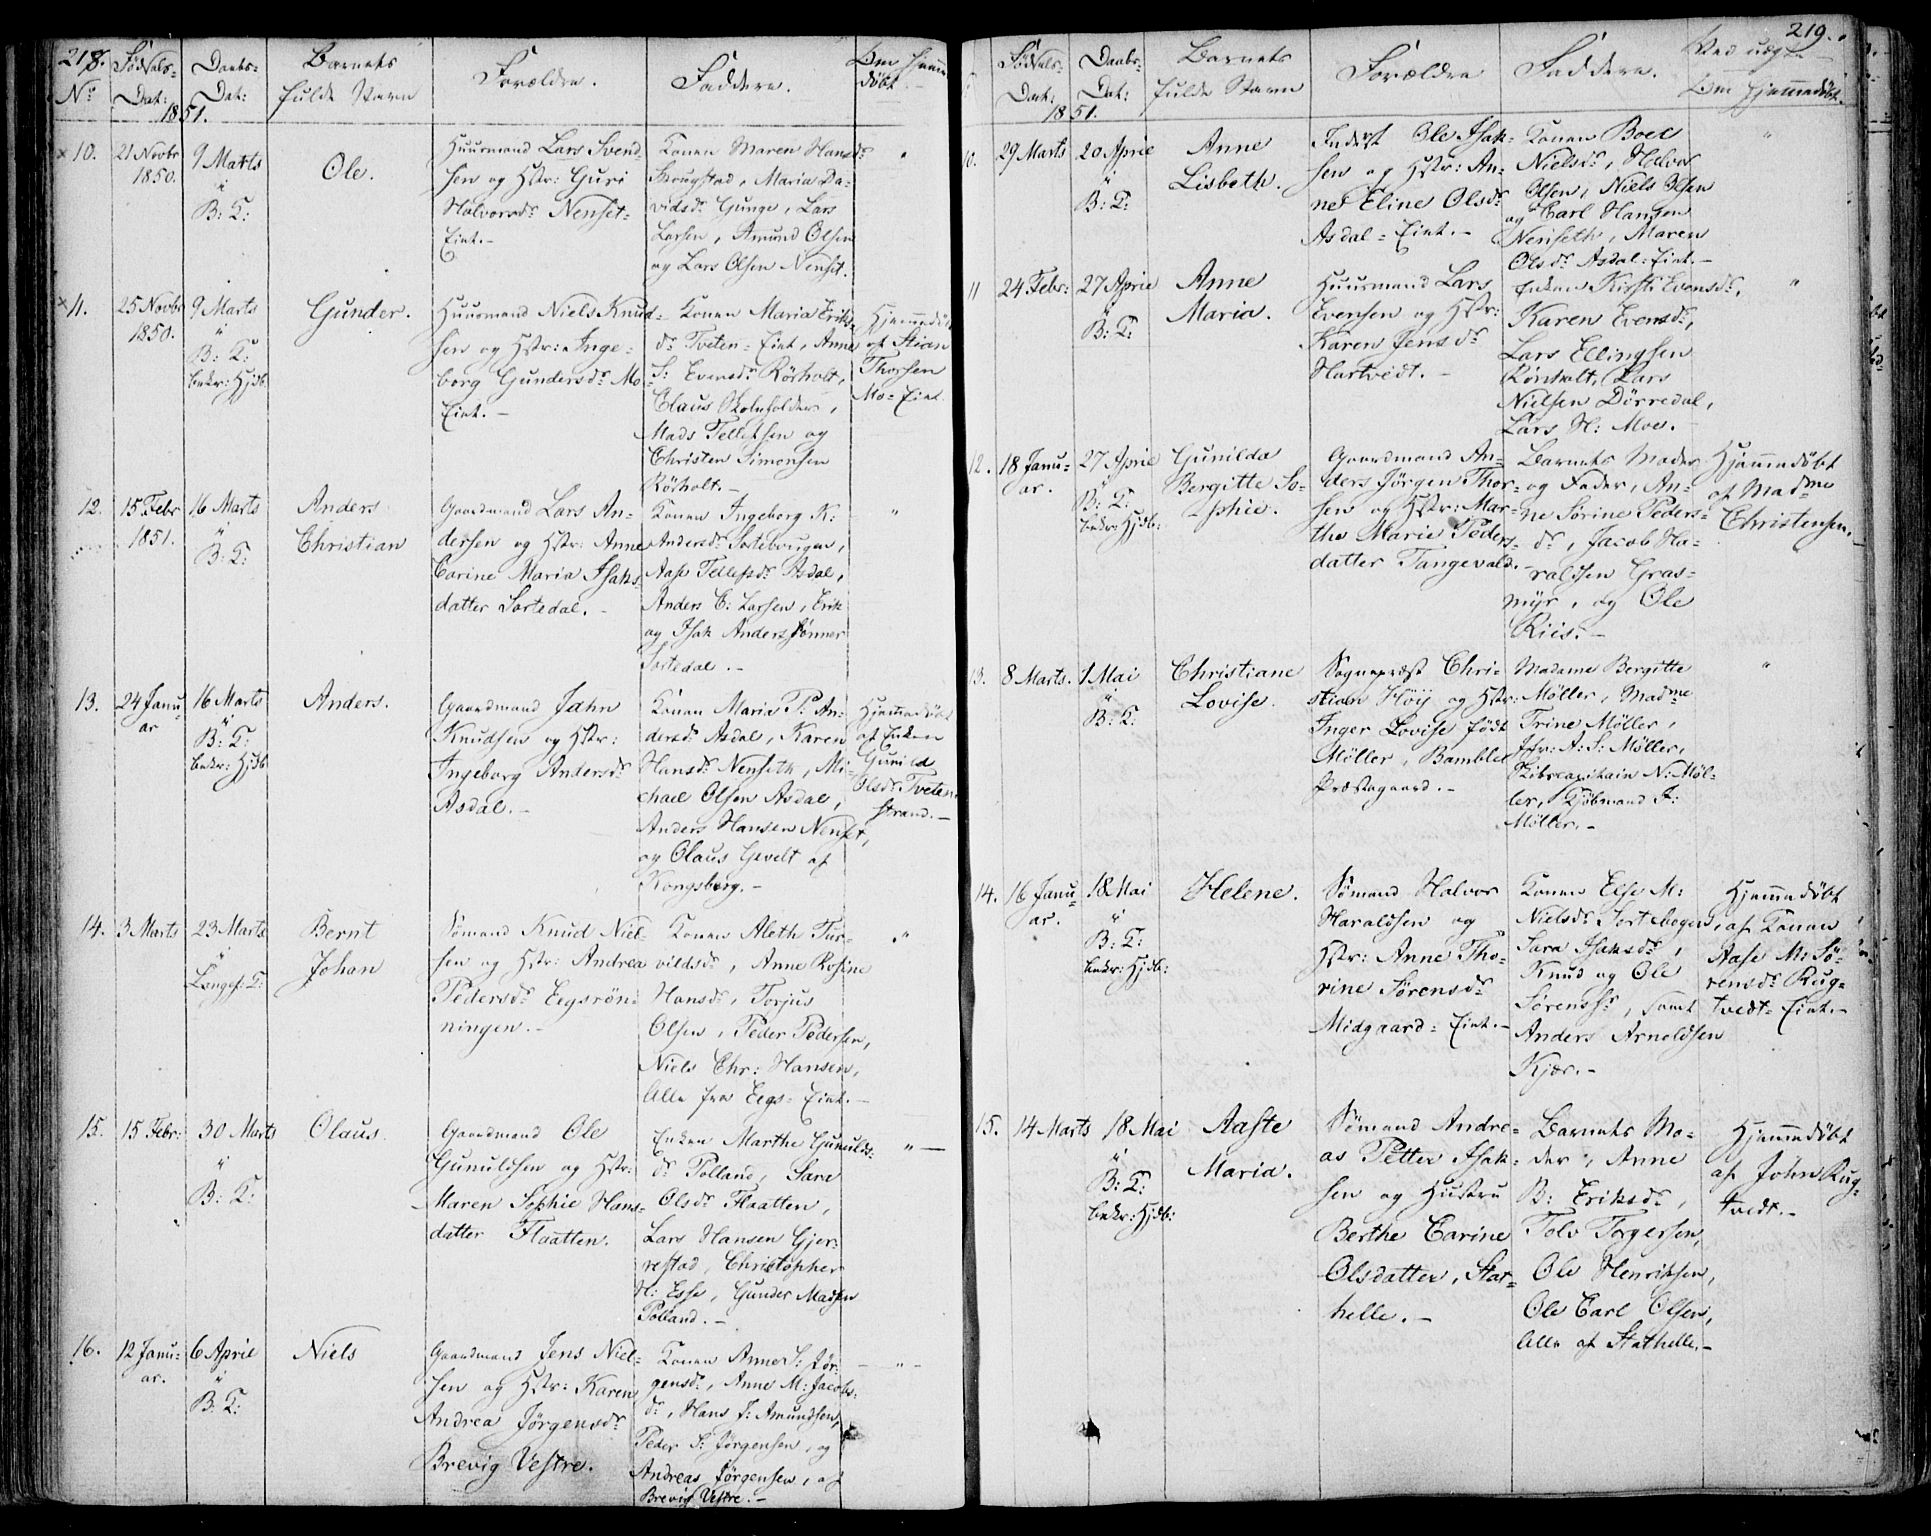 218.
No
Fødsels-
Dat:
Daabs-
Dat:
1851.
Barnets
fulde Navn
Forældre.
Faddere.
Om Hjemme
døbt.
10.
21 Novbr
1850.
9 Marts
"
B: K:
Ole.
Huusmand Lars Svend-
sen og Hstr: Guri
Halvorsdr Nenset-
Eiet.-
Konen Maren Hansdr
Skougstad, Maria Da-
vidsdr Gunge, Lars
Larsen, Amund Olsen
og Lars Olsen Nenset.
"
11.
25 Novbr
1850.
9 Marts
"
B: K:
bekr: Hjdb
Gunder.
Huusmand Niels Knud-
sen og Hstr: Inge-
borg Gundersdr Mo-
Eiet.-
Konen Maria Eriks
dr Tveten-Eiet, Anne
S: Evensdr Rørholt,
Claus Skoleholder,
Mads Tellefsen og
Christen Simonsen
Rørholt.-
Hjemmedøbt
af Stian
Thorsen
Mo-Eiet
12.
15 Febr
1851.
16 Marts
"
B: K:
Anders
Christian
Gaardmand Lars An-
dersen og Hstr: Anne
Carine Maria Isaks
datter Sortedal.-
Konen Ingeborg K:
Andersdr Sortebougen,
Aase Tellefsdr Asdal,
Anders C: Larsen, Erik
og Isak Anders Sønner
Sortedal.-
"
13.
24 Janu-
ar
16 Marts
"
B: K:
bekr: Hjdb
Anders.
Gaardmand Jahn
Knudsen og Hstr:
Ingeborg Andersdr
Asdal.-
Konen Maria P: An-
dersdr Asdal, Karen
Hansdr Nenseth, Mi-
chael Olsen Asdal,
Anders Hansen Nenset,
og Olaus Gevelt af
Kongsberg.-
Hjemmedøbt
af Enken
Gunild
Olsdr Tveten
strand.-
14.
3 Marts
23 Marts
"
Langes: K:
Bernt
Johan
Sømand Knud Niel-
sen og Hstr: Andrea
Pedersdr Eegsrøn-
ningen.-
Konen Aleth Tur-
vildsdr, Anne Rosine
Hansdr, Torjus
Olsen, Peder Pedersen,
Niels Chr: Hansen,
Alle fra Eegs-Eiet.-
"
15.
15 Febr:
30 Marts
"
B: K:
Olaus.
Gaardmand Ole
Gunuldsen og Hstr:
Maren Sophie Hans-
datter Flaatten.
Enken Marthe Gunulds-
dr Polland, Sara
Olsdr Flaatten,
Lars Hansen Gjer-
restad, Christopher
H: Esse, Gunder Madsen
Polland.-
"-
16.
12 Janu-
ar.
6 April
"
B: K:
Niels
Gaardmand Jens Niel-
sen og Hstr: Karen
Andrea Jørgensdr
Brevig Vestre.
Konen Anne S: Jør-
gensdr, Anne M: Jacobs-
dr, Hans J: Amundsen,
Peder S: Jørgensen, og
Andreas Jørgensen, af
Brevig Vestre.-
-"-
219.
Fødsels-
Dat:
Daabs-
Dat:
1851.
Barnets
fulde Navn
Forældre
Faddere.
Om Hjemmedøbt.
10.
29 Marts
20 April
"
B: K:
Anne
Lisbeth.
Inderst Ole Isak-
sen og Hstr: An-
ne Eline Olsdr
Asdal-Eiet.-
Konen Boel
Nielsdr, Halvor
Olsen, Niels Olsen
og Carl Hansen
Nenseth, Maren
Olsdr Asdal-Eiet.-
"
11
24 Febr:
27 April
"
B: K:
Anne
Maria.
Huusmand Lars
Evensen og Hstr:
Karen Jensdr
Hartvedt.-
Enken Kirsti Evensdr,
Karen Evensdr,
Lars Ellingsen
Rønholt, Lars
Nielsen Dørredal,
Lars H: Moe.-
"
12.
18 Janu-
ar.
27 April
"
B: K:
bekr: Hjdb:
Gunilda
Bergitte So-
phie.
Gaardmand An-
ders Jørgen Thor-
sen og Hstr: Mar-
the Marie Peders-
datter Tangevald.-
Barnets Moder
og Fader, An-
ne Sørine Peders-
dr, Jacob Ha-
raldsen Gras-
myr, og Ole
Riis.-
Hjemmedøbt
af Madme
Christensen.-
13.
8 Marts.
1 Mai
"
B: K:
Christiane
Lovise.
Sognepræst Chri-
stian Høy og Hstr:
Inger Lovise født
Møller, Bamble
Præstegaard.-
Madame Bergitte
Møller, Madme
Trine Møller,
Jfr: A: S: Møller,
Skibscapitain N: Møl-
ler, Kjøbmand F:
Møller.-
"
14.
16 Janu-
ar.
18 Mai
"
B: K:
bekr: Hjdb:
Helene.
Sømand Halvor
Haraldsen og
Hstr: Anne Tho-
rine Sørensdr
Midgaard-Eiet.-
Konen Else M:
Nielsdr Sortebogen,
Sara Isaksdr,
Knud og Ole
Sørenssr, samt
Anders Arnoldsen
Kjær.-
Hjemmedøbt
af Konen
Aase M: Sø-
rensdr Rug-
tvedt-Eiet.-
15.
14 Marts
18 Mai
"
B: K:
bekr: Hjdb:
Aaste
Maria.
Sømand Andre-
as Petter Isak-
sen og Hustru
Berthe Carine
Olsdatter, Stat-
helle.-
Barnets Mo-
der, Anne
B: Eriksdr,
Tolv Torgersen,
Ole Henriksen,
Ole Carl Olsen,
Alle af Stathelle.-
Hjemmedøbt
af John Rug-
tvedt.-